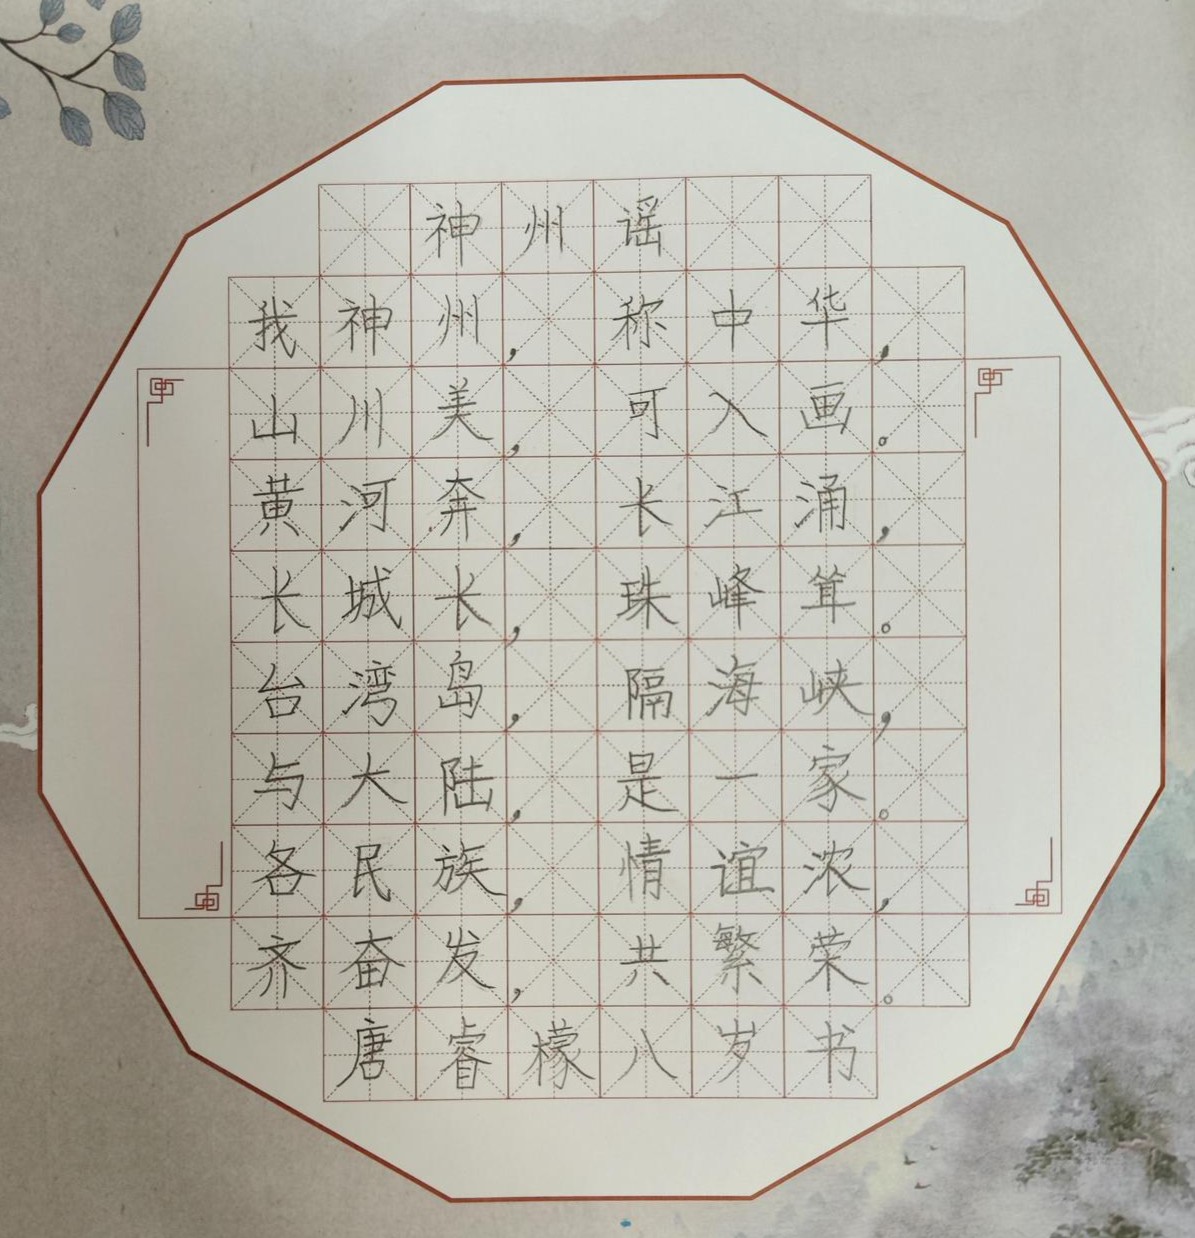 神州谣
我神州，称中华，
山川美，可入画。
黄河奔，长江涌，
长城长，珠峰耸。
台湾岛，隔海峡，
与大陆，是一家。
各民族，情谊浓，
齐奋发，共繁荣。
唐睿檬八岁书